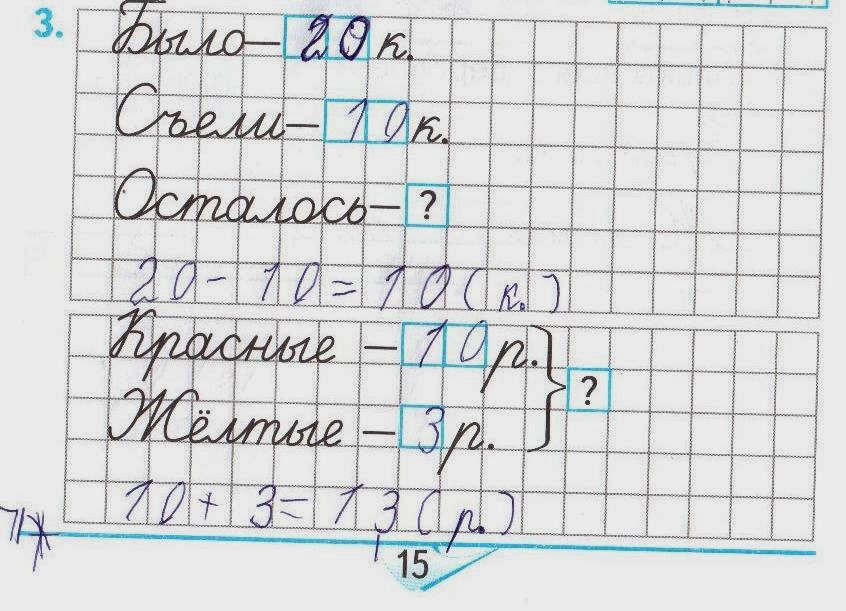 3.
Было— 20 к.
Съели— 10 к.
Осталось— ?
20 - 10 = 10 ( к. )
Красные — 10 р.
?
Жёлтые — 3 р.
10 + 3 = 13 ( р. )
15